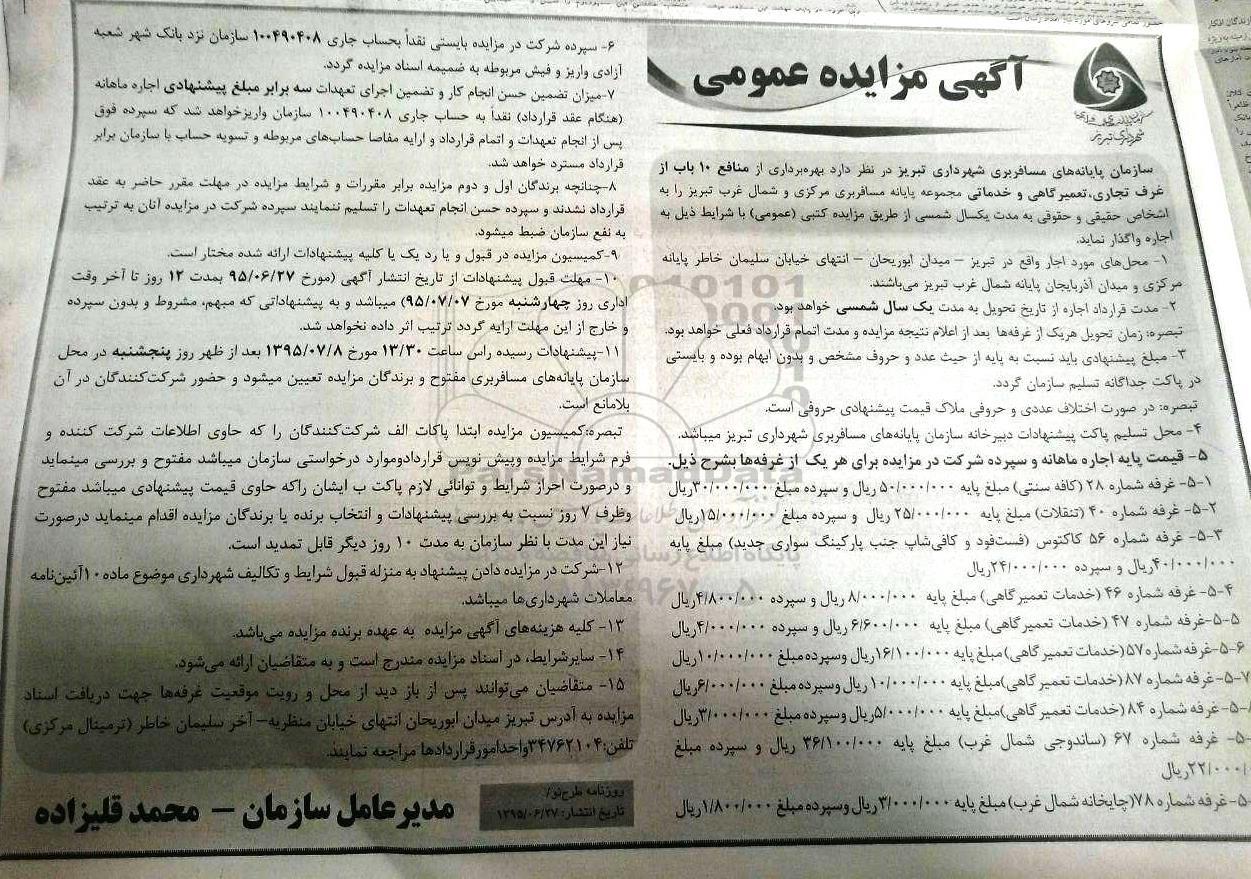 آگهی مزایده عمومی
سازمان پایانه‌های مسافربری شهرداری تبریز
سازمان پایانه‌های مسافربری شهرداری تبریز در نظر دارد بهره‌برداری از منافع ۱۰ باب از
غرف تجاری،تعمیرگاهی و خدماتی مجموعه پایانه مسافربری مرکزی و شمال غرب تبریز را به
اشخاص حقیقی و حقوقی به مدت یکسال شمسی از طریق مزایده کتبی (عمومی) با شرایط ذیل به
اجاره واگذار نماید.
۱- محل‌های مورد اجار واقع در تبریز – میدان ابوریحان – انتهای خیابان سلیمان خاطر پایانه
مرکزی و میدان آذربایجان پایانه شمال غرب تبریز می‌باشند.
۲- مدت قرارداد اجاره از تاریخ تحویل به مدت یک سال شمسی خواهد بود.
تبصره: زمان تحویل هریک از غرفه‌ها بعد از اعلام نتیجه مزایده و مدت اتمام قرارداد فعلی خواهد بود.
۳- مبلغ پیشنهادی باید نسبت به پایه از حیث عدد و حروف مشخص و بدون ابهام بوده و بایستی
در پاکت جداگانه تسلیم سازمان گردد.
تبصره: در صورت اختلاف عددی و حروفی ملاک قیمت پیشنهادی حروفی است.
۴- محل تسلیم پاکت پیشنهادات دبیرخانه سازمان پایانه‌های مسافربری شهرداری تبریز میباشد.
۵- قیمت پایه اجاره ماهانه و سپرده شرکت در مزایده برای هر یک از غرفه‌ها بشرح ذیل.
۵-۱- غرفه شماره ۲۸ (کافه سنتی) مبلغ پایه ۵۰/۰۰۰/۰۰۰ ریال و سپرده مبلغ ۳۰/۰۰۰/۰۰۰ریال
۵-۲- غرفه شماره ۴۰ (تنقلات) مبلغ پایه ۲۵/۰۰۰/۰۰۰ ریال و سپرده مبلغ ۱۵/۰۰۰/۰۰۰ریال
۵-۳- غرفه شماره ۵۶ کاکتوس (فست‌فود و کافی‌شاپ جنب پارکینگ سواری جدید) مبلغ پایه
۴۰/۰۰۰/۰۰۰ریال و سپرده ۲۴/۰۰۰/۰۰۰ریال
۵-۴- غرفه شماره ۴۶ (خدمات تعمیرگاهی) مبلغ پایه ۸/۰۰۰/۰۰۰ ریال و سپرده ۴/۸۰۰/۰۰۰ریال
۵-۵-غرفه شماره ۴۷ (خدمات تعمیرگاهی) مبلغ پایه ۶/۶۰۰/۰۰۰ ریال و سپرده ۴/۰۰۰/۰۰۰ریال
۵-۶-غرفه شماره۵۷(خدمات تعمیرگاهی) مبلغ پایه ۱۶/۱۰۰/۰۰۰ریال وسپرده مبلغ ۱۰/۰۰۰/۰۰۰ریال
۵-۷-غرفه شماره ۸۷ (خدمات تعمیرگاهی)مبلغ پایه ۱۰/۰۰۰/۰۰۰ ریال وسپرده مبلغ ۶/۰۰۰/۰۰۰ریال
۵-غرفه شماره ۸۴ (خدمات تعمیرگاهی)مبلغ پایه ۵/۰۰۰/۰۰۰ریال وسپرده مبلغ ۳/۰۰۰/۰۰۰ریال
۵- غرفه شماره ۶۷ (ساندوجی شمال غرب) مبلغ پایه ۳۶/۱۰۰/۰۰۰ ریال و سپرده مبلغ
۲۲/۰۰۰/۰۰۰ریال
۵-غرفه شماره ۷۸(چایخانه شمال غرب)مبلغ پایه ۳/۰۰۰/۰۰۰ریال وسپرده مبلغ ۱/۸۰۰/۰۰۰ریال
۶- سپرده شرکت در مزایده بایستی نقداً بحساب جاری ۱۰۰۴۹۰۴۰۸ سازمان نزد بانک شهر شعبه
آزادی واریز و فیش مربوطه به ضمیمه اسناد مزایده گردد.
۷-میزان تضمین حسن انجام کار و تضمین اجرای تعهدات سه برابر مبلغ پیشنهادی اجاره ماهانه
(هنگام عقد قرارداد) نقداً به حساب جاری ۱۰۰۴۹۰۴۰۸ سازمان واریزخواهد شد که سپرده فوق
پس از انجام تعهدات و اتمام قرارداد و ارایه مفاصا حساب‌های مربوطه و تسویه حساب با سازمان برابر
قرارداد مسترد خواهد شد.
۸-چنانچه برندگان اول و دوم مزایده برابر مقررات و شرایط مزایده در مهلت مقرر حاضر به عقد
قرارداد نشدند و سپرده حسن انجام تعهدات را تسلیم ننمایند سپرده شرکت در مزایده آنان به ترتیب
به نفع سازمان ضبط میشود.
۹-کمیسیون مزایده در قبول و یا رد یک یا کلیه پیشنهادات ارائه شده مختار است.
۱۰- مهلت قبول پیشنهادات از تاریخ انتشار آگهی (مورخ ۹۵/۰۶/۲۷ بمدت ۱۲ روز تا آخر وقت
اداری روز چهارشنبه مورخ ۹۵/۰۷/۰۷) میباشد و به پیشنهاداتی که مبهم، مشروط و بدون سپرده
و خارج از این مهلت ارایه گردد ترتیب اثر داده نخواهد شد.
۱۱-پیشنهادات رسیده راس ساعت ۱۳/۳۰ مورخ ۱۳۹۵/۰۷/۸ بعد از ظهر روز پنجشنبه در محل
سازمان پایانه‌های مسافربری مفتوح و برندگان مزایده تعیین میشود و حضور شرکت‌کنندگان در آن
بلامانع است.
تبصره:کمیسیون مزایده ابتدا پاکات الف شرکت‌کنندگان را که حاوی اطلاعات شرکت کننده و
فرم شرایط مزایده وپیش نویس قراردادوموارد درخواستی سازمان میباشد مفتوح و بررسی مینماید
و درصورت احراز شرایط و توانائی لازم پاکت ب ایشان راکه حاوی قیمت پیشنهادی میباشد مفتوح
وظرف ۷ روز نسبت به بررسی پیشنهادات و انتخاب برنده یا برندگان مزایده اقدام مینماید درصورت
نیاز این مدت با نظر سازمان به مدت ۱۰ روز دیگر قابل تمدید است.
۱۲-شرکت در مزایده دادن پیشنهاد به منزله قبول شرایط و تکالیف شهرداری موضوع ماده۱۰آئین‌نامه
معاملات شهرداری‌ها میباشد.
۱۳- کلیه هزینه‌های آگهی مزایده به عهده برنده مزایده می‌باشد.
۱۴- سایرشرایط، در اسناد مزایده مندرج است و به متقاضیان ارائه می‌شود.
۱۵- متقاضیان می‌توانند پس از باز دید از محل و رویت موقعیت غرفه‌ها جهت دریافت اسناد
مزایده به آدرس تبریز میدان ابوریحان انتهای خیابان منظریه– آخر سلیمان خاطر (ترمینال مرکزی)
تلفن:۳۴۷۶۲۱۰۴واحدامورقراردادها مراجعه نمایند.
روزنامه طرح‌نو/
تاریخ انتشار: ۱۳۹۵/۰۶/۲۷
مدیرعامل سازمان – محمد قلیزاده